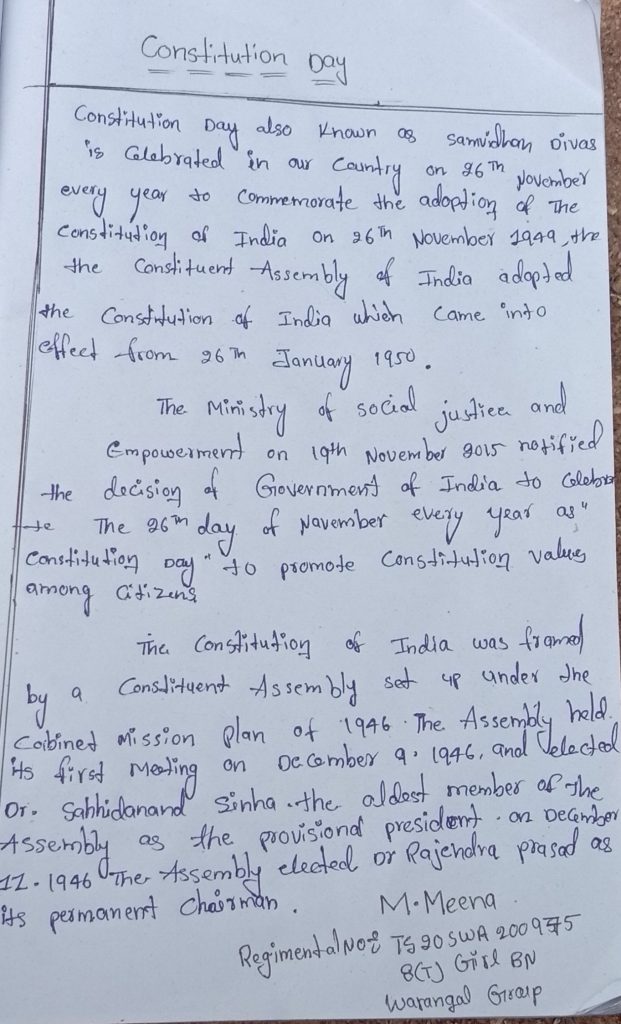 Constitution Day
Constitution Day also known as samvidhan Divas
is Celebrated in our Country on 26Th November
every year to Commemorate the adoption of The
Constitution of India on 26Th November 1949, the
the Constituent Assembly of India adopted
the Constitution of India which Came into
effect from 26Th January 1950.
The Ministry of social justice and
Empowerment on 19th November 2015 notified
the decision of Government of India to Celebra
te The 26Th day of November every year as "
Constitution Day" to promote Constitution values
among Citizens
The Constitution of India was framed
by a Constituent Assembly set up under the
Coibinet Mission Plan of 1946. The Assembly held.
its first Meeting on December 9, 1946, and elected
Dr. Sahhidanand Sinha. the aldest member of the
Assembly as the provisional president. on December
11.1946 The Assembly elected Dr Rajendra prasad as
its permanent Chairman.
M.Meena
Regimental No: TS20SWA 200975
8(T) Girl BN
Warangal Group